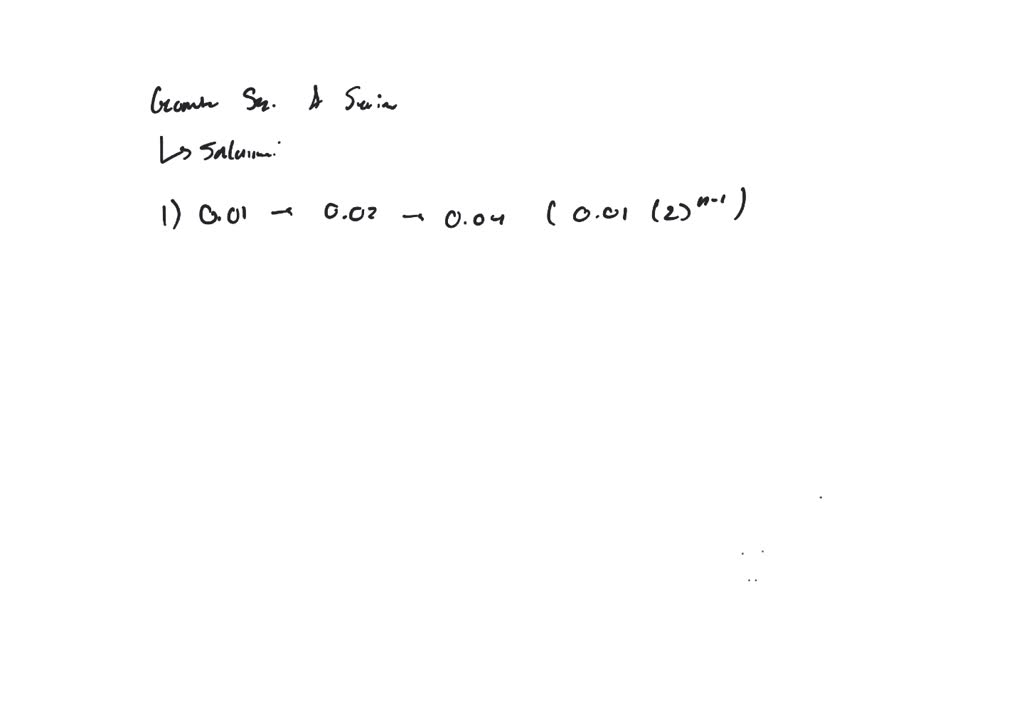 Geometric Seq. & Series
↳ Solution:
1) 0.01 → 0.02 → 0.04 ( 0.01 (2)^n-1 )